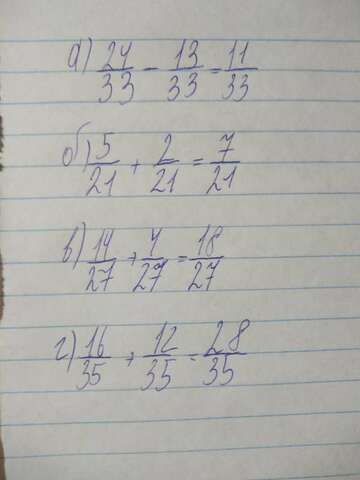 а) 24/33 - 13/33 = 11/33
б) 5/21 + 2/21 = 7/21
в) 14/27 + 4/27 = 18/27
г) 16/35 + 12/35 = 28/35